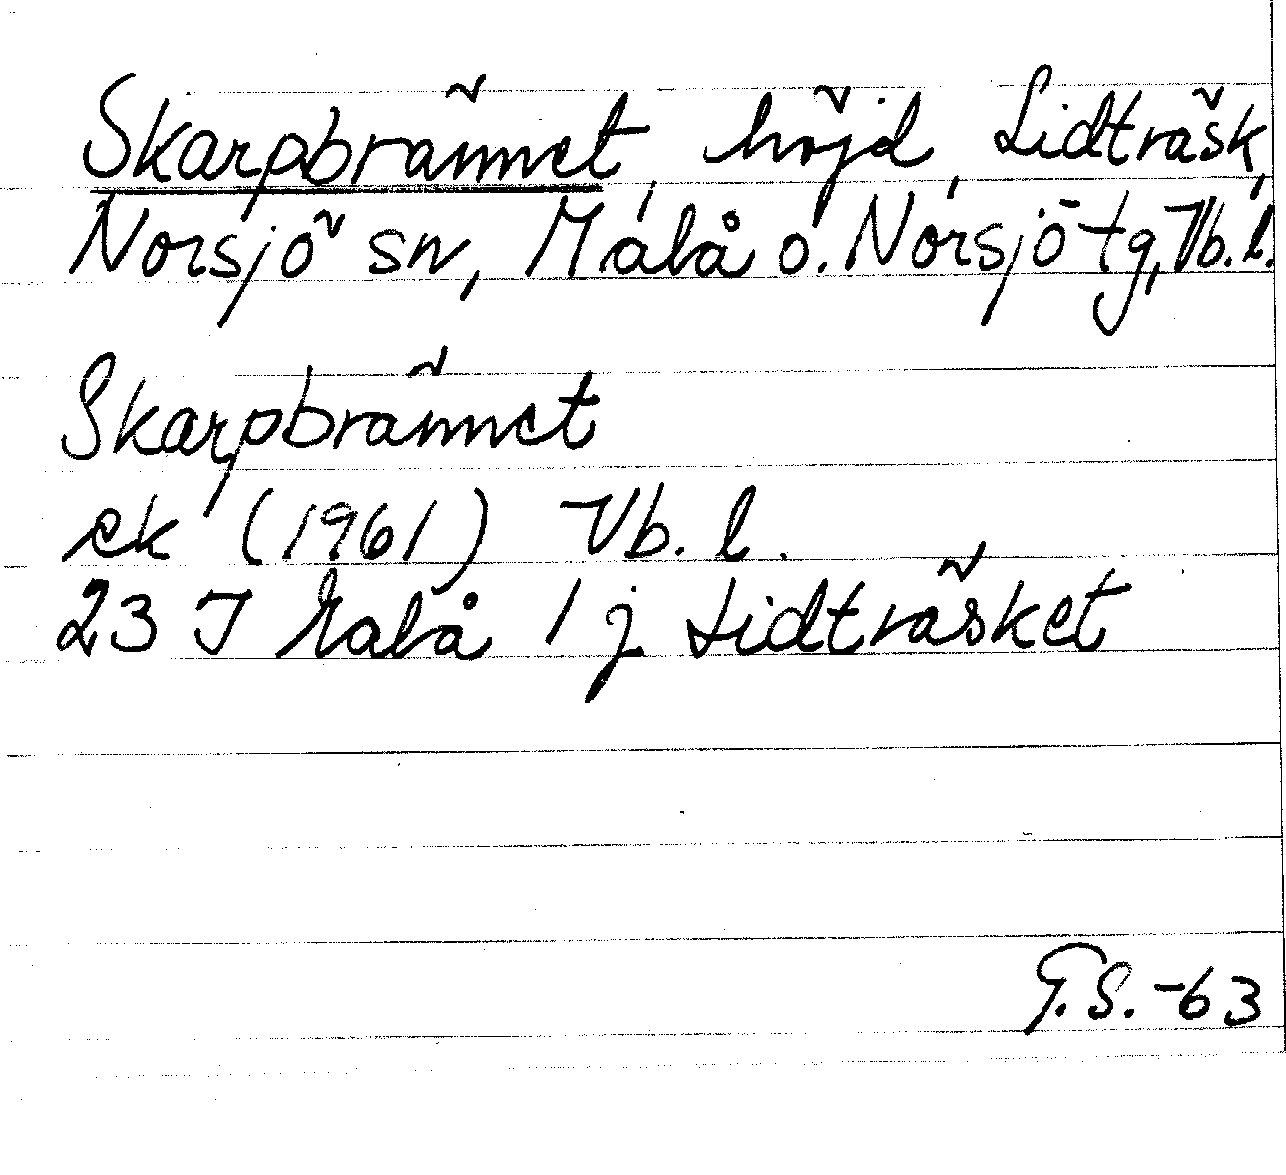 Skarpbrännet, höjd, Lidträsk,
Norsjö sn, Malå o. Norsjö tg, Vb. l.
Skarpbrännet
ek (1961) Vb. l.
23 J Malå 1 j Lidträsket
G.S. -63